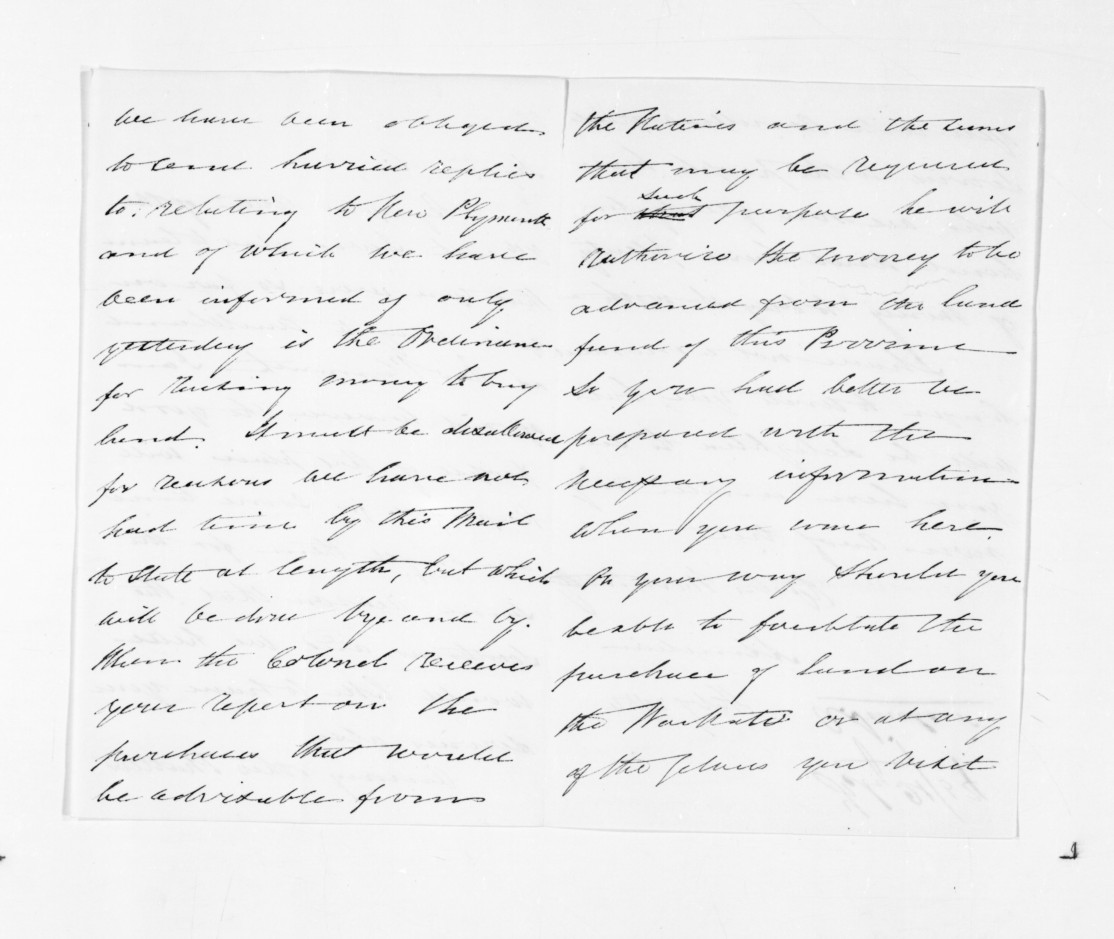 we have been obliged
to send hurried replies
to; relating to New Plymouth
and of which we have
been informed of only
yesterday is the Ordinance
for raising money to buy
land. It must be disallowed
for reasons we have not
had time by this Mail
to state at length, but which
will be done bye and by.
When the Colonel receives
your report on the
purchases that would
be advisable from
the Natives and the sums
that may be required
for that such purpose he will
authorise the money to be
advanced from the land
fund of this Province
So you had better be
prepared with the
necessary information
when you come here.
On your way should you
be able to facilitate the
purchase of land on
the Waikato or at any
of the places you visit